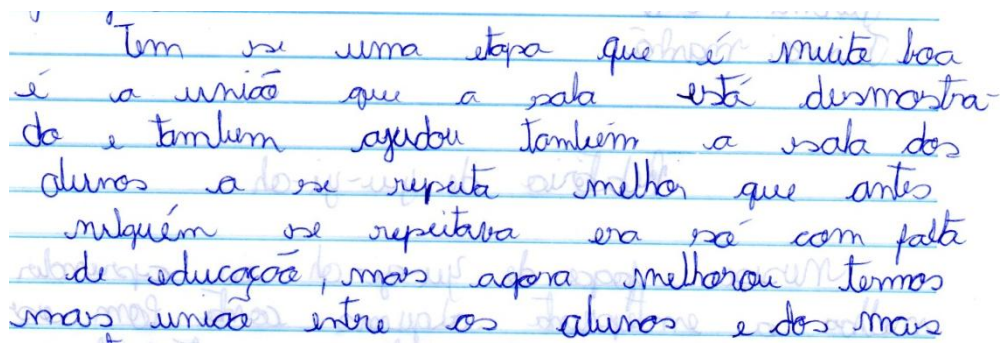 Tem se uma etapa que é muito boa
é a união que a sala está desmostra-
do e tambem ajudou também a sala dos
alunos a se repeita melhor que antes
nilguém se repeitava era só com falta
de educação, mas agora melhorou termos
mas união entre os alunos e dos mas